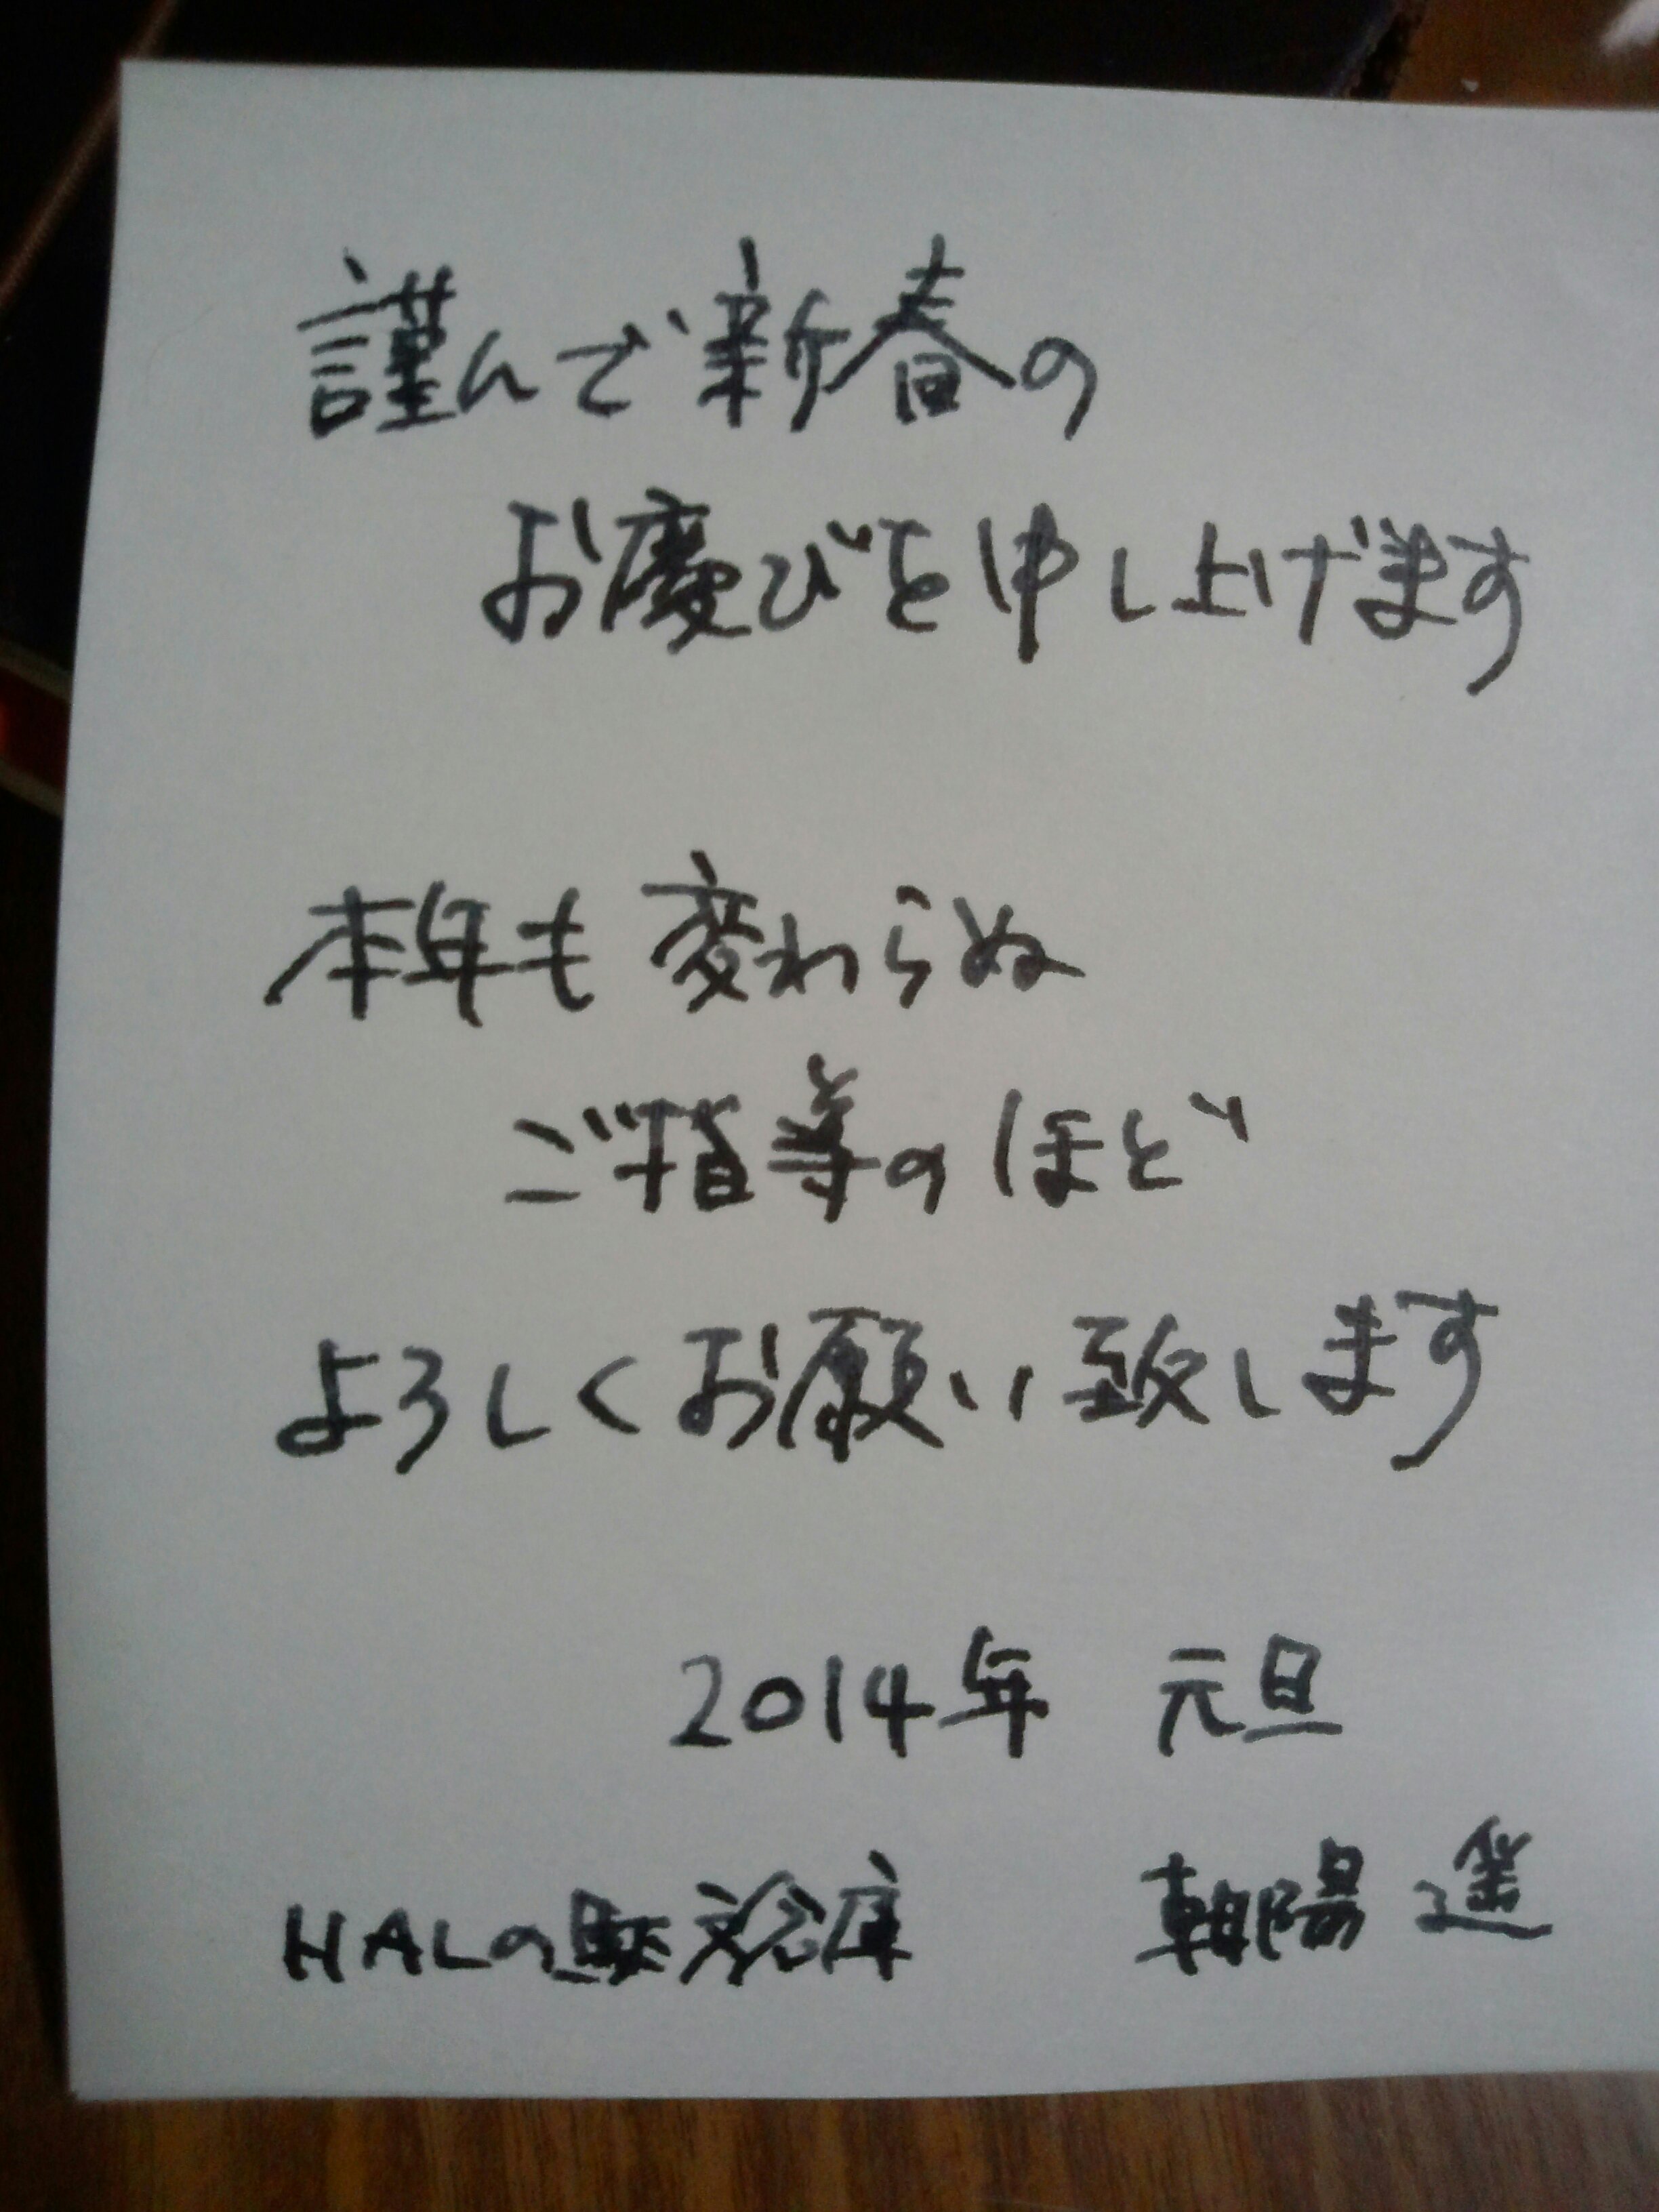 謹んで新春の
お慶びを申し上げます
本年も変わらぬ
ご指導のほど
よろしくお願い致します
2014年 元旦
HALの 朝陽 遥